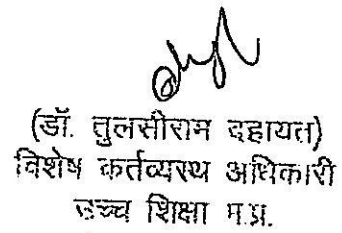 (डॉ. तुलसीराम दहायत)
विशेष कर्तव्यस्थ अधिकारी
उच्च शिक्षा म.प्र.